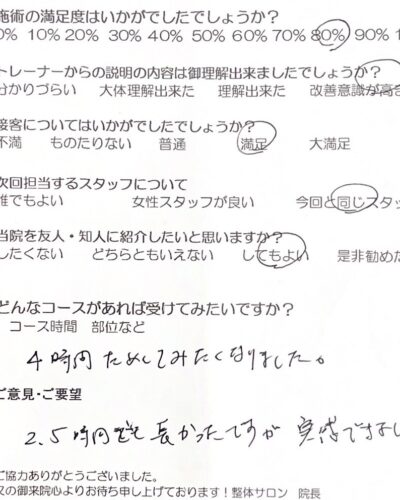 施術の満足度はいかがでしたでしょうか？
0% 10% 20% 30% 40% 50% 60% 70% 80% 90% 1
トレーナーからの説明の内容は御理解出来ましたでしょうか？
分かりづらい 大体理解出来た 理解出来た 改善意識が高
接客についてはいかがでしたでしょうか？
不満 ものたりない 普通 満足 大満足
次回担当するスタッフについて
誰でもよい 女性スタッフが良い 今回と同じスタッ
当院を友人・知人に紹介したいと思いますか？
したくない どちらともいえない してもよい 是非勧めた
どんなコースがあれば受けてみたいですか？
コース時間 部位など
4時間ためしてみたくなりました。
ご意見・ご要望
2.5時間でも長かったですが 実感できまし
ご協力ありがとうございました。
又の御来院心よりお待ち申し上げております！整体サロン 院長